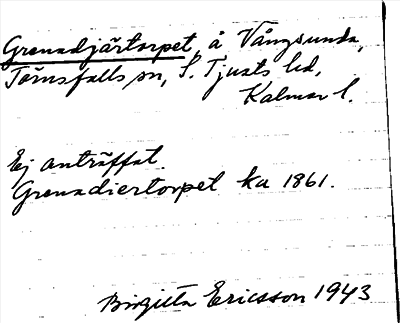 Grenadjärtorpet, å Vångsunda,
Törnsfalls sn, S. Tjusts hd,
Kalmar l.
Ej anträffat.
Grenadiertorpet ka 1861.
Birgitta Ericsson 1943